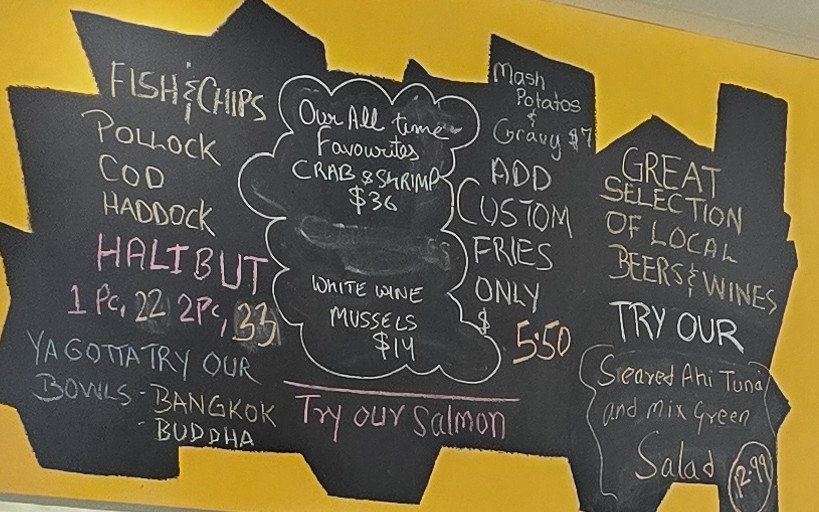 FISH & CHIPS
POLLOCK
COD
HADDOCK
HALIBUT
1 Pc, 22 2Pc, 33
YA GOTTA TRY OUR
BOWLS - BANGKOK
- BUDDHA
Our All time
Favourites
CRAB & SHRIMP
$36
WHITE WINE
MUSSELS
$14
Try our Salmon
Mash
Potatos
&
Gravy $7
ADD
CUSTOM
FRIES
ONLY
$5.50
GREAT
SELECTION
OF LOCAL
BEERS & WINES
TRY OUR
Seared Ahi Tuna
and mix Green
Salad 12.99